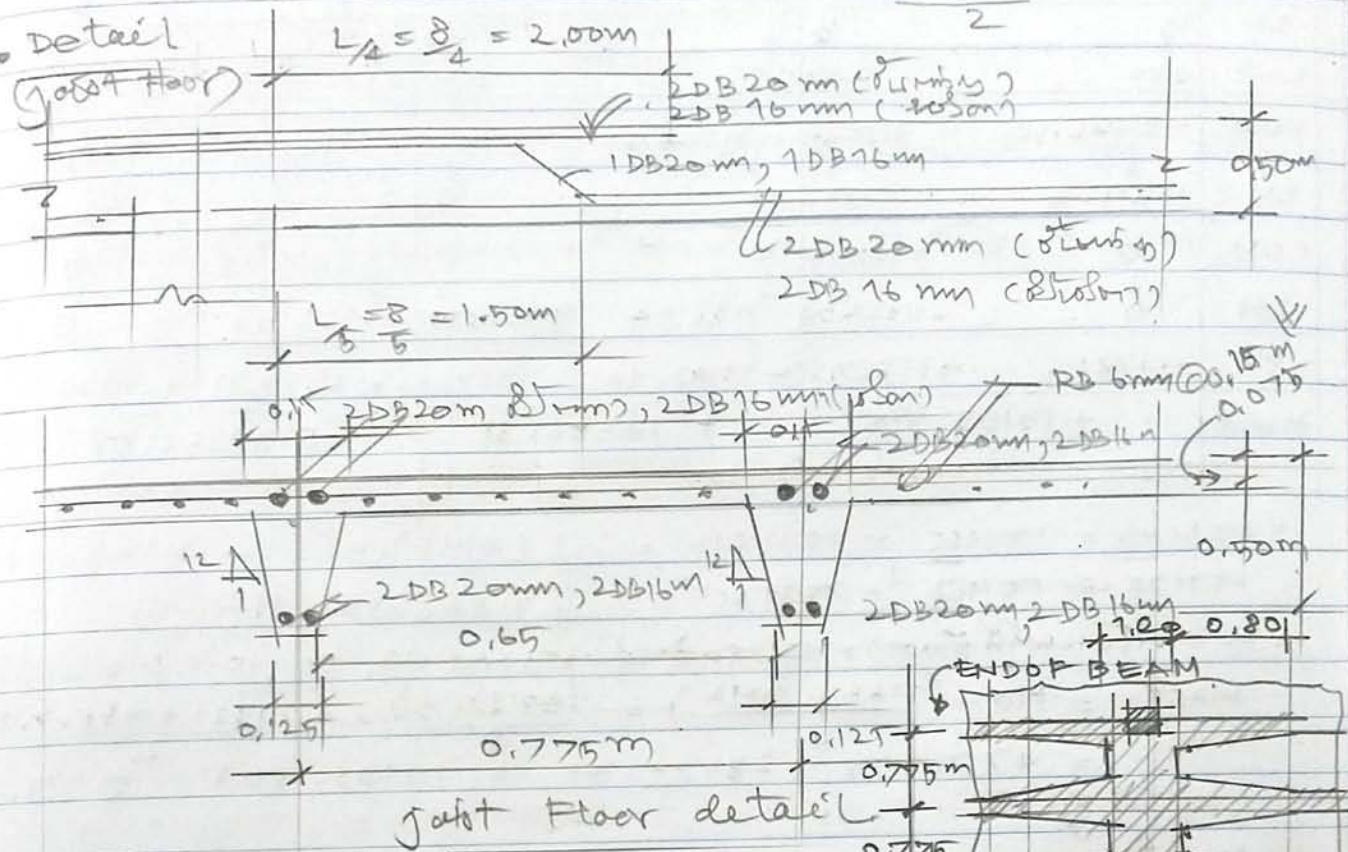 2
Detail
Joist Floor
L/4 = 8/4 = 2.00m
2DB20mm
2DB16mm
1DB20mm, 1DB16mm
0.50m
2DB20mm
2DB16mm
L/5 = 8/5 = 1.50m
RB 6mm@0.15m
0.075
0.15 2DB20m 2DB16mm
0.15
2DB20mm, 2DB16m
0.50m
12
1
2DB20mm, 2DB16m
12
1
2DB20mm, 2DB16mm
0.65
1.00 0.80
END OF BEAM
0.125
0.775m
0.125
0.775m
Joist Floor detail
0.775